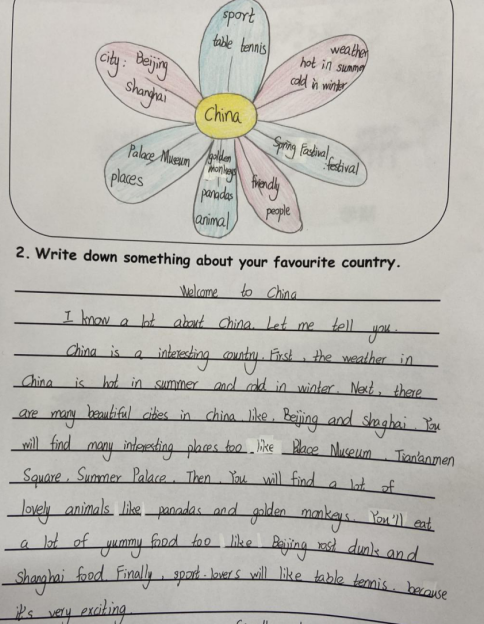 sport
table tennis
weather
hot in summer
cold in winter
city: Beijing
Shanghai
China
Spring Fastival
festival
Palace Museum
places
golden
monkeys
panadas
animal
friendly
people
2. Write down something about your favourite country.
Welcome to China
I know a lot about China. Let me tell you.
China is a interesting country. First, the weather in
China is hot in summer and cold in winter. Next, there
are many beautiful cities in china, like, Beijing and shaghai. You
will find many interesting places too. like Place Museum, Tian'anmen
Square, Summer Palace. Then, You will find a lot of
lovely animals like panadas and golden monkeys. You'll eat
a lot of yummy food too like Beijing rost dunk and
Shanghai food. Finally, sport-lovers will like table tennis, because
it's very exciting.